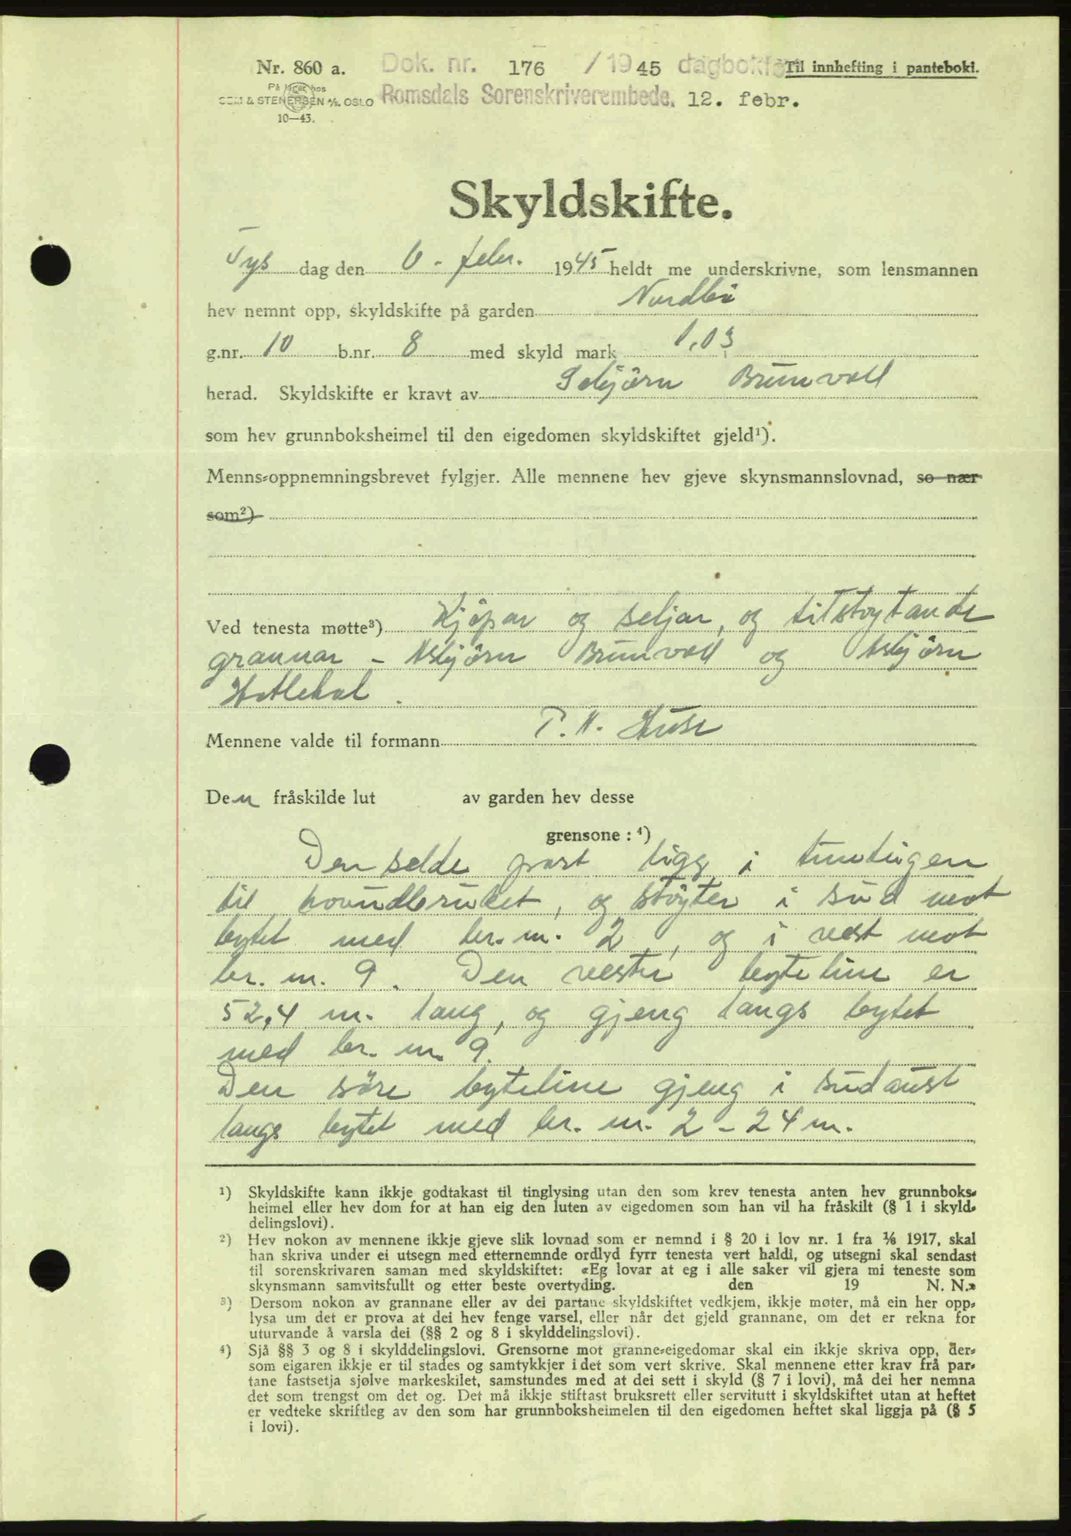 Nr. 860 a.
Dok. nr. 176 /1945 dagbokf
Til innhefting i panteboki.
På lager hos
SEM & STENERSEN A/S. OSLO
10—43.
Romsdals Sorenskriverembede. 12. febr.
Skyldskifte.
Tys dag den 6. febr. 1945 heldt me underskrivne, som lensmannen
hev nemnt opp, skyldskifte på garden Nordbø
g.nr. 10 b.nr. 8 med skyld mark 1,03
herad. Skyldskifte er kravt av Asbjørn Brunvoll
som hev grunnboksheimel til den eigedomen skyldskiftet gjeld¹).
Menns-oppnemningsbrevet fylgjer. Alle mennene hev gjeve skynsmannslovnad, so nær
som²)
Ved tenesta møtte³) Kjøpar og seljar, og tilstøytande
grannar – Asbjørn Brunvoll og Asbjørn
Hatlehol.
Mennene valde til formann P. N. Huse
Den fråskilde lut av garden hev desse
grensone : ⁴)
Den selde part ligg i
til hovudbruket, og støyter i sud mot
bytet med br. nr. 2, og i vest mot
br. nr. 9. Den vestre byteline er
52,4 m. lang, og gjeng langs bytet
med br. nr. 9.
Den søre byteline gjeng i sudaust
langs bytet med br. nr. 2 – 24 m.
¹) Skyldskifte kann ikkje godtakast til tinglysing utan den som krev tenesta anten hev grunnboks-
heimel eller hev dom for at han eig den luten av eigedomen som han vil ha fråskilt (§ 1 i skyld-
delingslovi).
²) Hev nokon av mennene ikkje gjeve slik lovnad som er nemnd i § 20 i lov nr. 1 fra ⅙ 1917, skal
han skriva under ei utsegn med etternemnde ordlyd fyrr tenesta vert haldi, og utsegni skal sendast
til sorenskrivaren saman med skyldskiftet: «Eg lovar at eg i alle saker vil gjera mi teneste som
skynsmann samvitsfullt og etter beste overtyding. den 19 N. N.»
³) Dersom nokon av grannane eller av dei partane skyldskiftet vedkjem, ikkje møter, må ein her opp-
lysa um det er prova at dei hev fenge varsel, eller når det gjeld grannane, om det er rekna for
uturvande å varsla dei (§§ 2 og 8 i skylddelingslovi).
⁴) Sjå §§ 3 og 8 i skylddelingslovi. Grensorne mot granne-eigedomar skal ein ikkje skriva opp, der-
som eigaren ikkje er til stades og samtykkjer i det som vert skrive. Skal mennene etter krav frå par-
tane fastsetja sjølve markeskilet, samstundes med at dei sett i skyld (§ 7 i lovi), må dei her nemna
det som trengst om det og. Det må ikkje stiftast bruksrett eller servitutt i skyldskiftet utan at heftet
er vedteke skriftleg av den som har grunnboksheimelen til den eigedomen heftet skal liggja på (§ 5
i lovi).